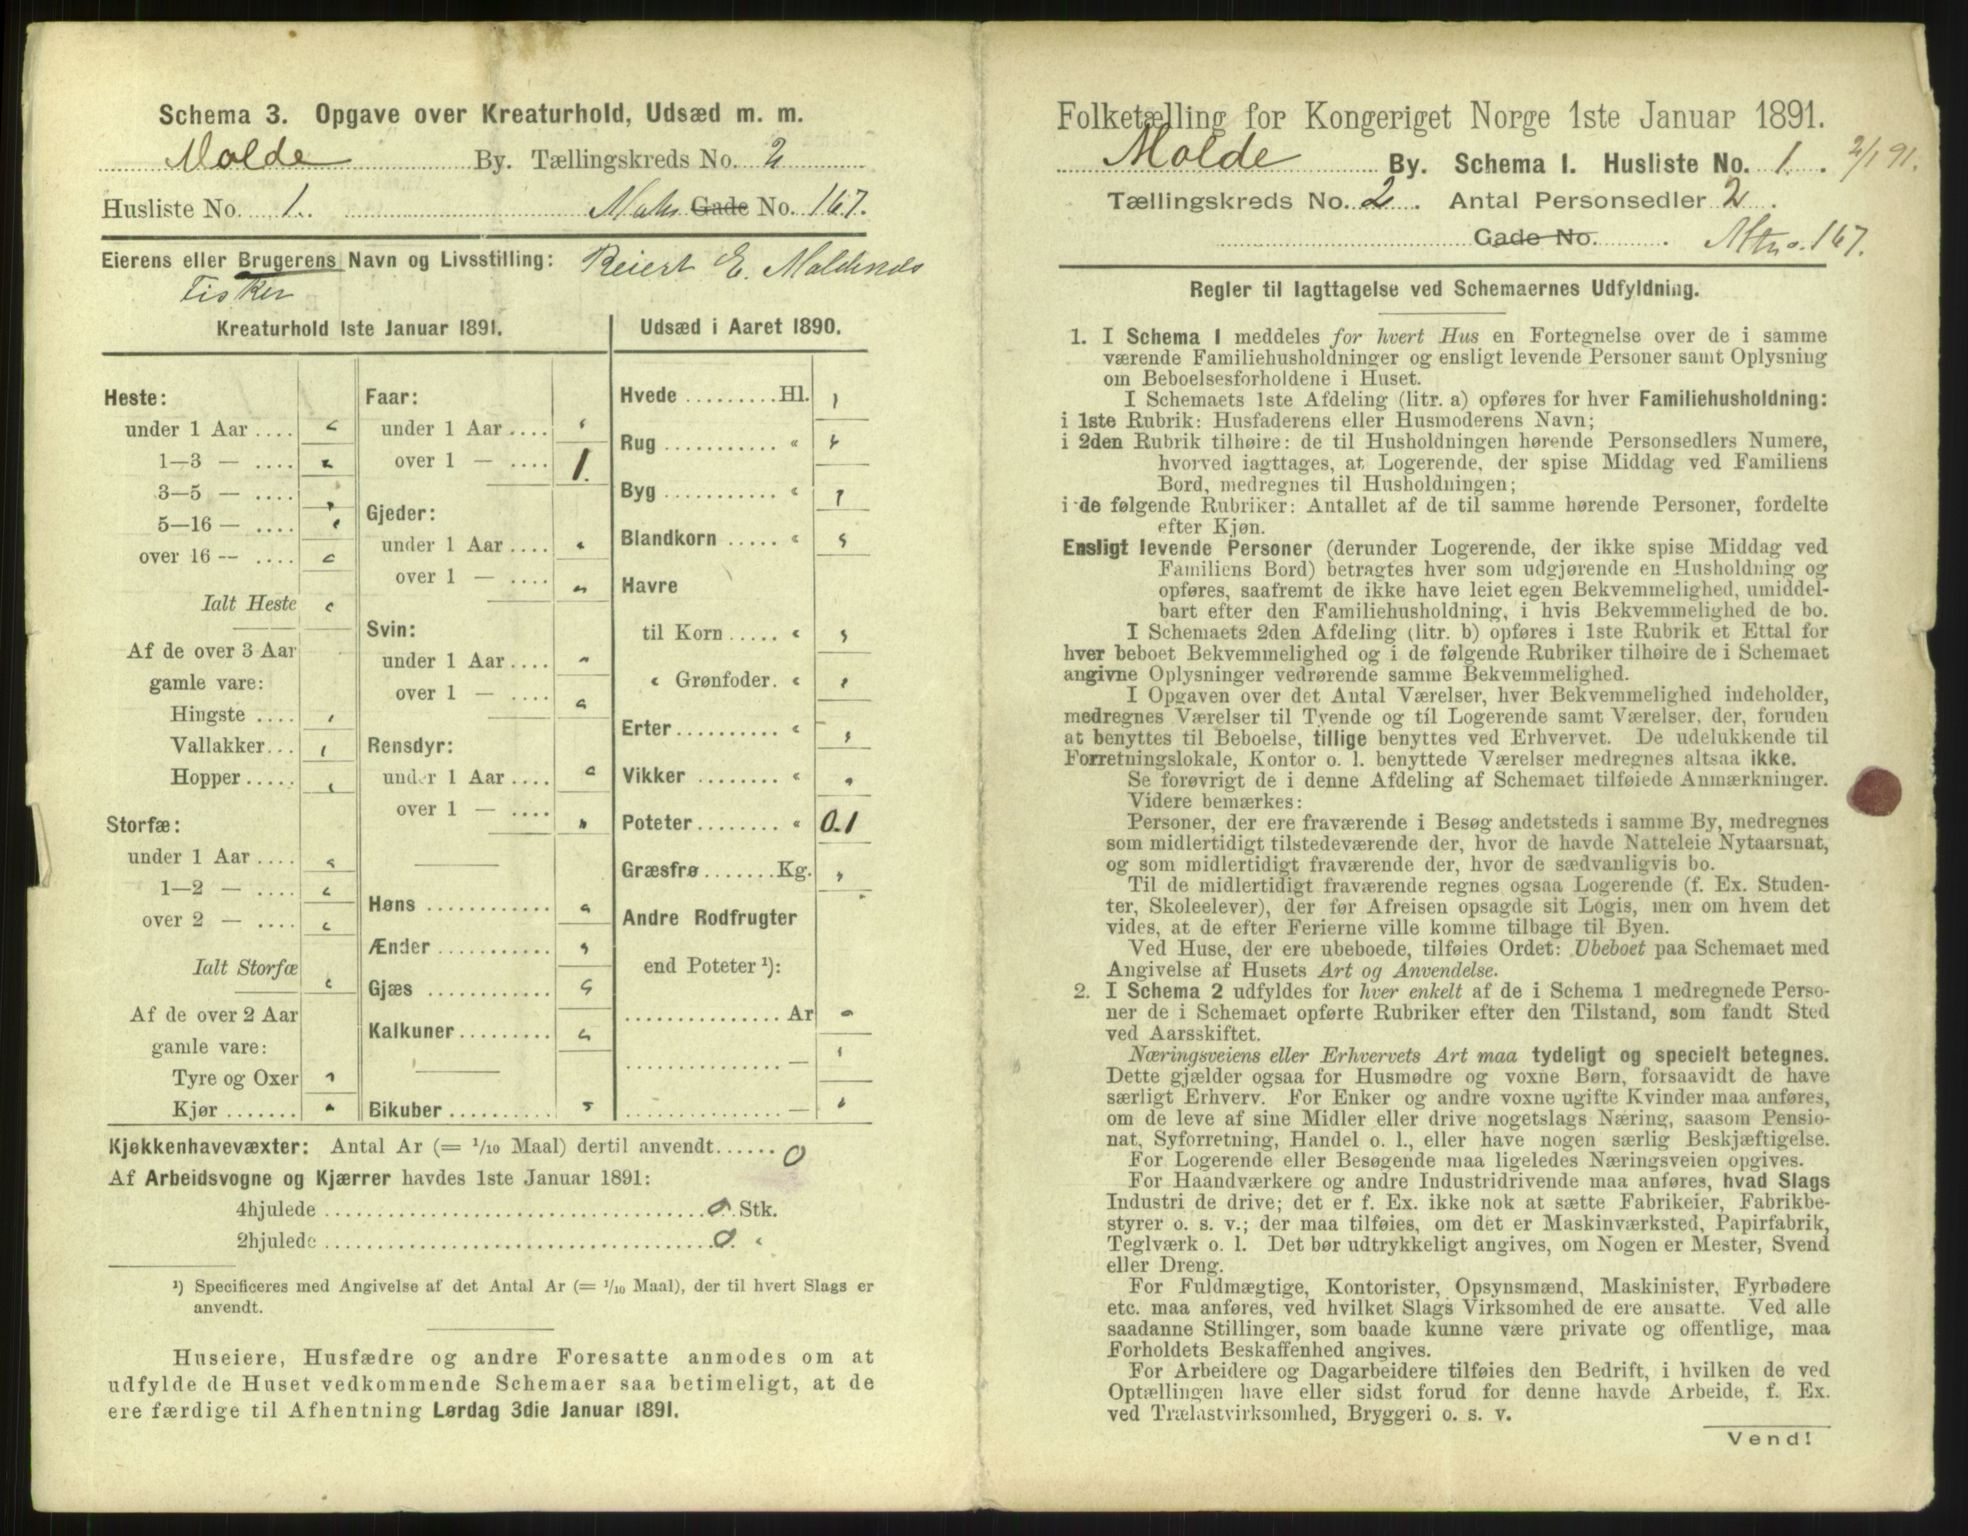 Schema 3. Opgave over Kreaturhold, Udsæd m. m.
Molde By. Tællingskreds No. 2
Husliste No. 1. Mats Gade No. 167.
Eierens eller Brugerens Navn og Livsstilling: Reiert E.
Fisker
Kreaturhold 1ste Januar 1891. Udsæd i Aaret 1890.
Heste:
under 1 Aar ....
1—3 — ....
3—5 — ....
5—16 — ....
over 16 — ....
Ialt Heste
Af de over 3 Aar
gamle vare:
Hingste ....
Vallakker...
Hopper .....
Storfæ:
under 1 Aar ....
1—2 — ....
over 2 — ....
Ialt Storfæ
Af de over 2 Aar
gamle vare:
Tyre og Oxer
Kjør .......
Faar:
under 1 Aar ....
over 1 — .... 1.
Gjeder:
under 1 Aar ....
over 1 — ....
Svin:
under 1 Aar ....
over 1 — ....
Rensdyr:
under 1 Aar ....
over 1 — ....
Høns ............
Ænder ...........
Gjæs ............
Kalkuner .........
Bikuber ..........
Hvede ......... Hl.
Rug ........... «
Byg ........... «
Blandkorn ..... «
Havre
til Korn ..... «
« Grønfoder. «
Erter .......... «
Vikker ........ «
Poteter ........ « 0.1
Græsfrø ....... Kg.
Andre Rodfrugter
end Poteter ¹):
............... Ar
............... —
............... —
Kjøkkenhavevæxter: Antal Ar (= 1/10 Maal) dertil anvendt...... 0
Af Arbeidsvogne og Kjærrer havdes 1ste Januar 1891:
4hjulede ........ 0 Stk.
2hjulede ........ 0. «
¹) Specificeres med Angivelse af det Antal Ar (= 1/10 Maal), der til hvert Slags er
anvendt.
Huseiere, Husfædre og andre Foresatte anmodes om at
udfylde de Huset vedkommende Schemaer saa betimeligt, at de
ere færdige til Afhentning Lørdag 3die Januar 1891.
Folketælling for Kongeriget Norge 1ste Januar 1891.
Molde By. Schema I. Husliste No. 1. 2/1 91.
Tællingskreds No. 2. Antal Personsedler 2.
Gade No. Mtno. 167.
Regler til Iagttagelse ved Schemaernes Udfyldning.
1. I Schema 1 meddeles for hvert Hus en Fortegnelse over de i samme
værende Familiehusholdninger og ensligt levende Personer samt Oplysning
om Beboelsesforholdene i Huset.
I Schemaets 1ste Afdeling (litr. a) opføres for hver Familiehusholdning:
i 1ste Rubrik: Husfaderens eller Husmoderens Navn;
i 2den Rubrik tilhøire: de til Husholdningen hørende Personsedlers Numere,
hvorved iagttages, at Logerende, der spise Middag ved Familiens
Bord, medregnes til Husholdningen;
i de følgende Rubriker: Antallet af de til samme hørende Personer, fordelte
efter Kjøn.
Ensligt levende Personer (derunder Logerende, der ikke spise Middag ved
Familiens Bord) betragtes hver som udgjørende en Husholdning og
opføres, saafremt de ikke have leiet egen Bekvemmelighed, umiddel-
bart efter den Familiehusholdning, i hvis Bekvemmelighed de bo.
I Schemaets 2den Afdeling (litr. b) opføres i 1ste Rubrik et Ettal for
hver beboet Bekvemmelighed og i de følgende Rubriker tilhøire de i Schemaet
angivne Oplysninger vedrørende samme Bekvemmelighed.
I Opgaven over det Antal Værelser, hver Bekvemmelighed indeholder,
medregnes Værelser til Tyende og til Logerende samt Værelser, der, foruden
at benyttes til Beboelse, tillige benyttes ved Erhvervet. De udelukkende til
Forretningslokale, Kontor o. l. benyttede Værelser medregnes altsaa ikke.
Se forøvrigt de i denne Afdeling af Schemaet tilføiede Anmærkninger.
Videre bemærkes:
Personer, der ere fraværende i Besøg andetsteds i samme By, medregnes
som midlertidigt tilstedeværende der, hvor de havde Natteleie Nytaarsnat,
og som midlertidigt fraværende der, hvor de sædvanligvis bo.
Til de midlertidigt fraværende regnes ogsaa Logerende (f. Ex. Studen-
ter, Skoleelever), der før Afreisen opsagde sit Logis, men om hvem det
vides, at de efter Ferierne ville komme tilbage til Byen.
Ved Huse, der ere ubeboede, tilføies Ordet: Ubeboet paa Schemaet med
Angivelse af Husets Art og Anvendelse.
2. I Schema 2 udfyldes for hver enkelt af de i Schema 1 medregnede Perso-
ner de i Schemaet opførte Rubriker efter den Tilstand, som fandt Sted
ved Aarsskiftet.
Næringsveiens eller Erhvervets Art maa tydeligt og specielt betegnes.
Dette gjælder ogsaa for Husmødre og voxne Børn, forsaavidt de have
særligt Erhverv. For Enker og andre voxne ugifte Kvinder maa anføres,
om de leve af sine Midler eller drive nogetslags Næring, saasom Pensio-
nat, Syforretning, Handel o. l., eller have nogen særlig Beskjæftigelse.
For Logerende eller Besøgende maa ligeledes Næringsveien opgives.
For Haandværkere og andre Industridrivende maa anføres, hvad Slags
Industri de drive; det er f. Ex. ikke nok at sætte Fabrikeier, Fabrikbe-
styrer o. s. v.; der maa tilføies, om det er Maskinværksted, Papirfabrik,
Teglværk o. l. Det bør udtrykkeligt angives, om Nogen er Mester, Svend
eller Dreng.
For Fuldmægtige, Kontorister, Opsynsmænd, Maskinister, Fyrbødere
etc. maa anføres, ved hvilket Slags Virksomhed de ere ansatte. Ved alle
saadanne Stillinger, som baade kunne være private og offentlige, maa
Forholdets Beskaffenhed angives.
For Arbeidere og Dagarbeidere tilføies den Bedrift, i hvilken de ved
Optællingen have eller sidst forud for denne havde Arbeide, f. Ex.
ved Trælastvirksomhed, Bryggeri o. s. v.
Vend!